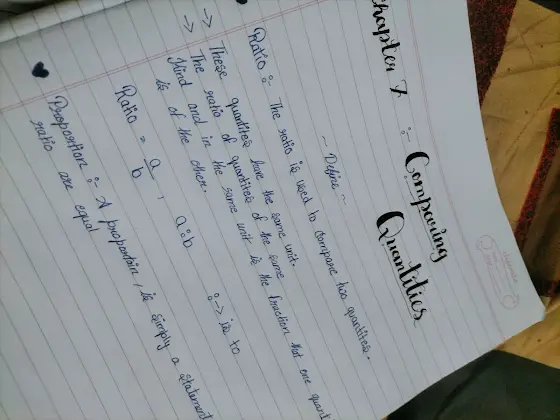 Chapter 7 :- Comparing
Quantities
~ Define ~
Ratio :- The ratio is used to compare two quantities.
→ These quantities have the same unit.
→ The ratio of quantities of the same
kind and in the same unit is the fraction that one quant
is of the other.
Ratio = a/b , a:b
:→ is to
Proportion :- A proportion, is simply a statement
ratio are equal